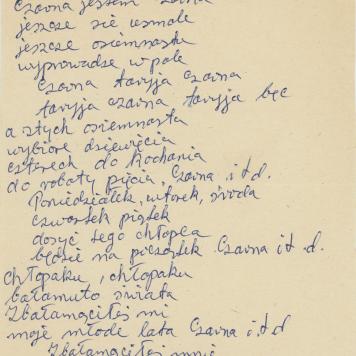 Czarna jestem Czarna
jeszcze się usmole
jeszcze osiemnastu
wyprowadze w pole
Czarna taryja czarna
taryja czarna taryja bęc
a z tych osiemnasta
wybiorę dziewięcia
czterech do kochania
do roboty pięcia, Czarna i.t.d.
Poniedziałek, wtorek, środa
czwartek piątek
dosyć tego chłopca
będzie na początek Czarna i t.d.
Chłopaku, chłopaku
bałamuto świata
Zbałamąciłeś mi
moje młode lata Czarna i.t.d
Zbałamąciłeś mnie